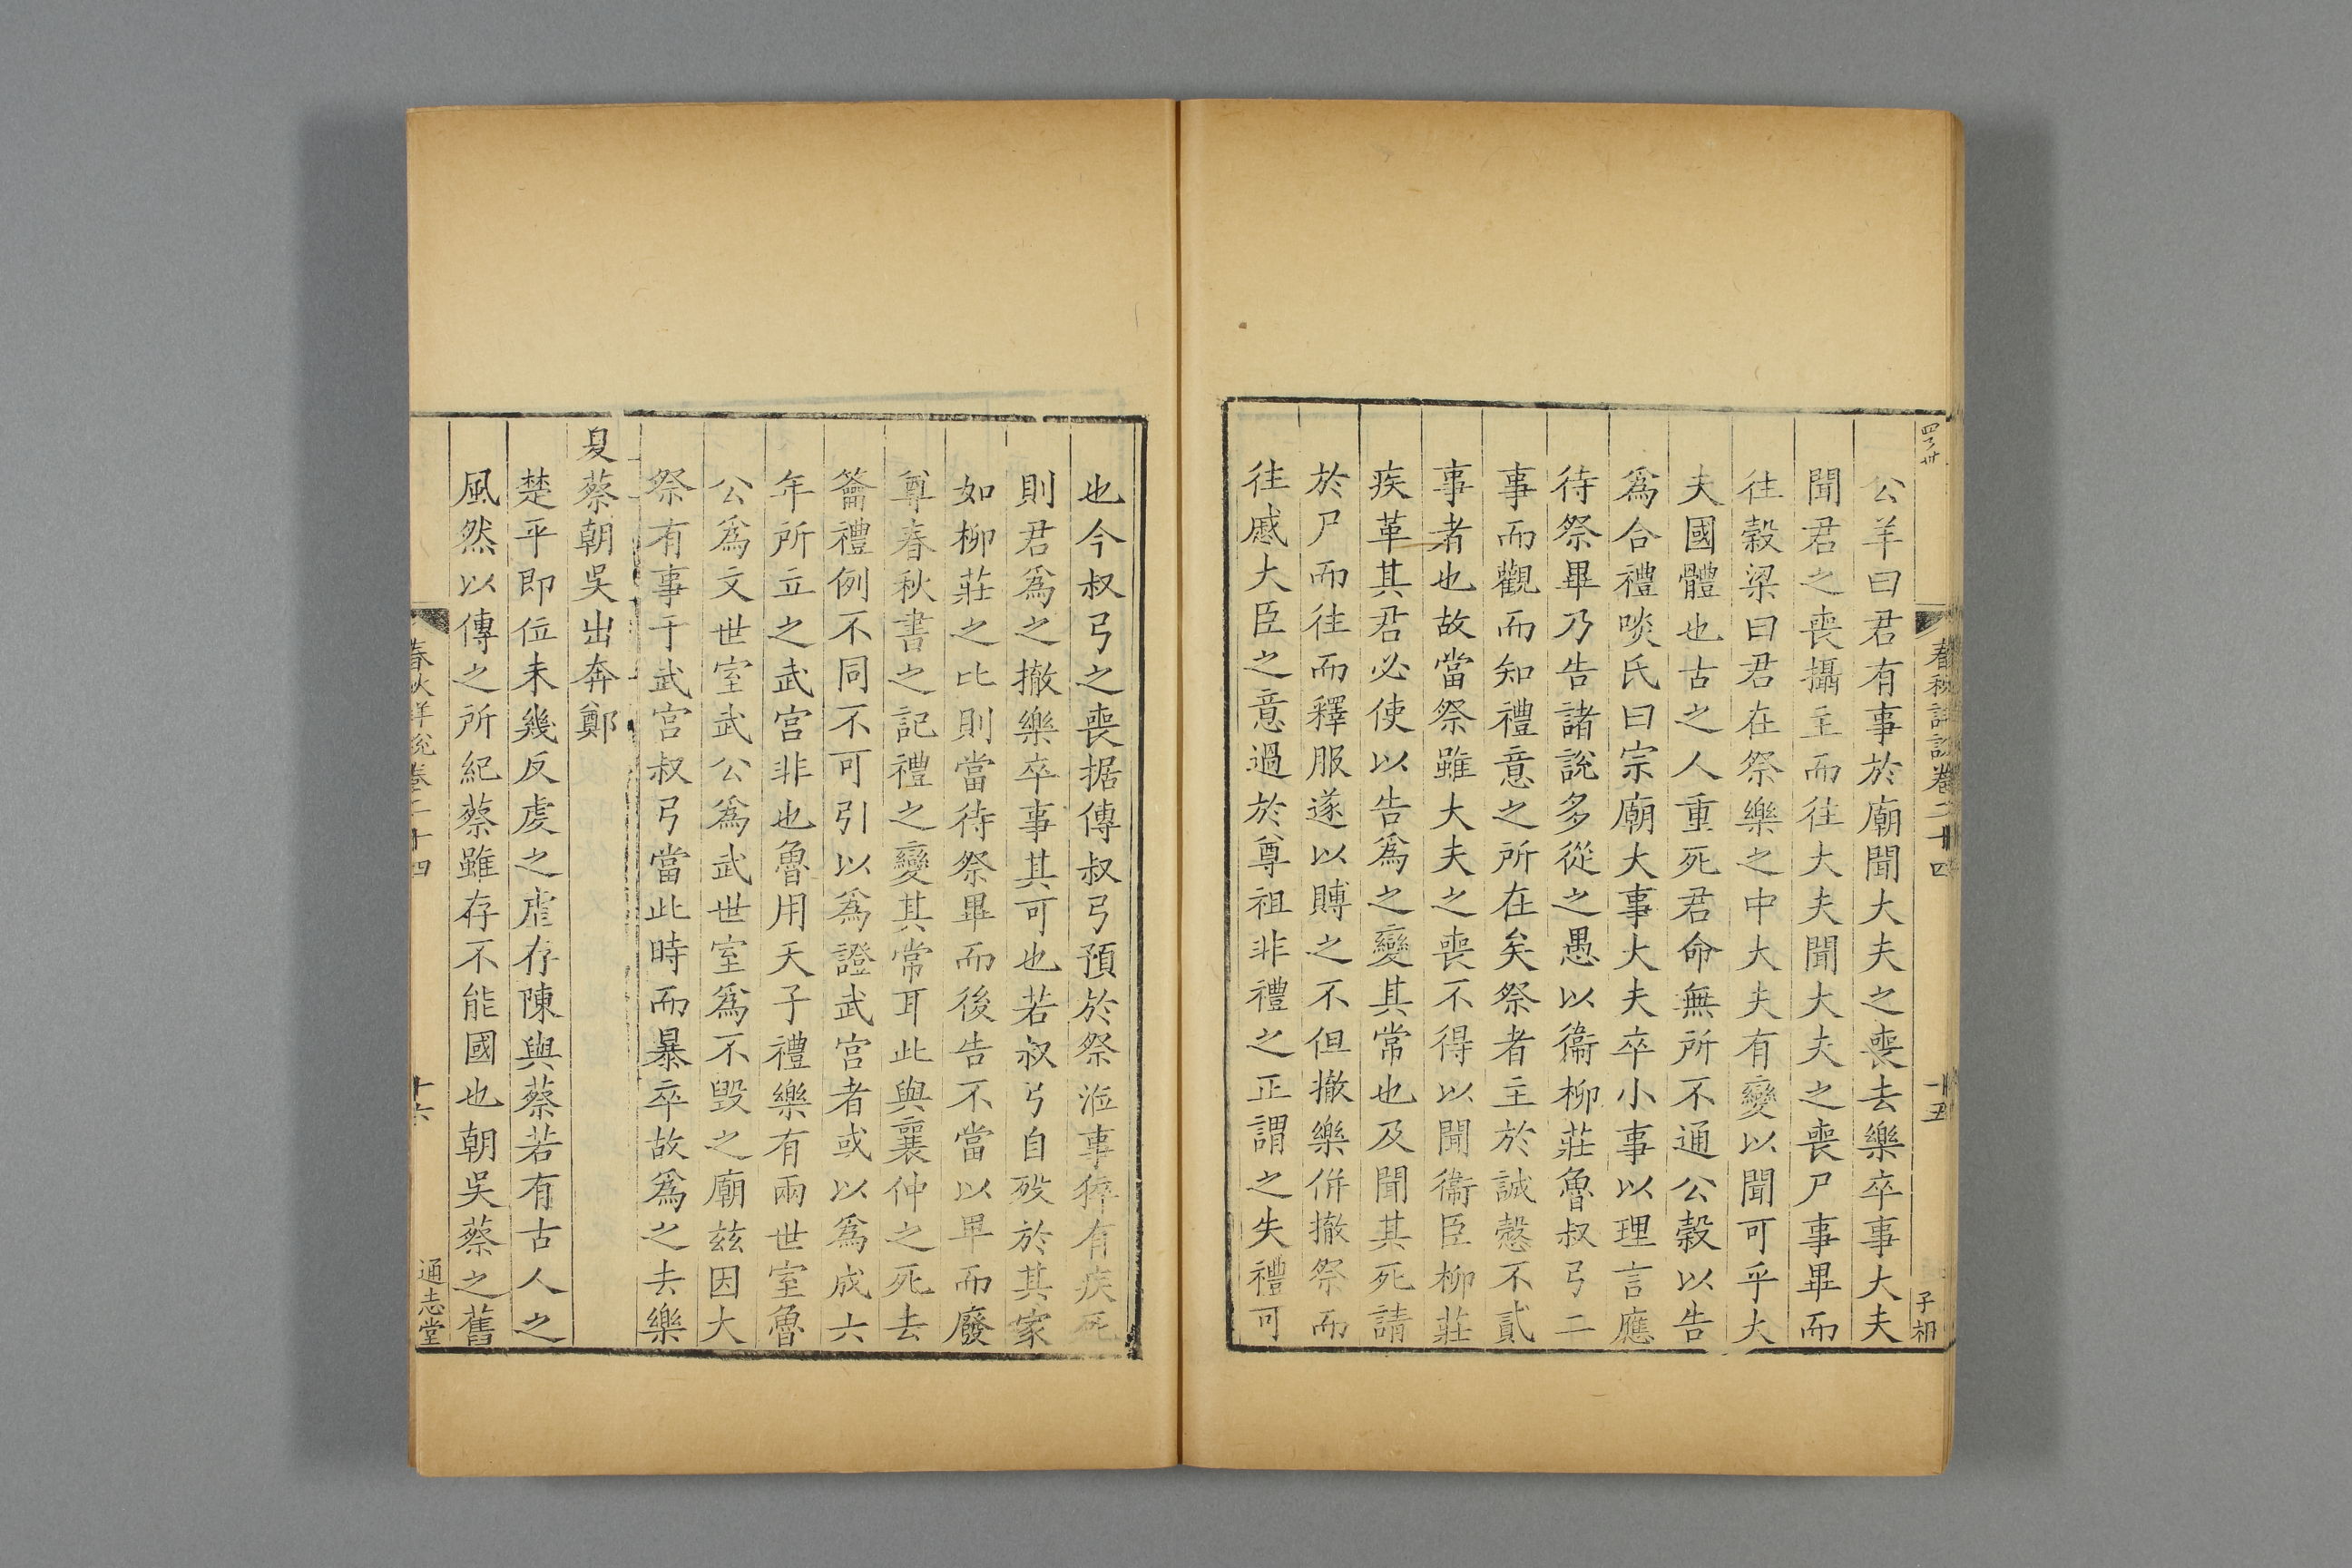 春秋詳說卷二十四
子朔
公羊曰君有事於廟聞大夫之喪去樂卒事大夫
聞君之喪攝主而往大夫聞大夫之喪尸事畢而
往穀梁曰君在祭樂之中大夫有變以聞可乎大
夫國體也古之人重死君命無所不通公穀以告
爲合禮啖氏曰宗廟大事大夫卒小事以理言應
待祭畢乃告諸說多從之愚以衞柳莊魯叔弓二
事而觀而知禮意之所在矣祭者主於誠慤不貳
事者也故當祭雖大夫之喪不得以聞衞臣柳莊
疾革其君必使以告爲之變其常也及聞其死請
於尸而往而釋服遂以賻之不但撤樂併撤祭而
往慼大臣之意過於尊祖非禮之正謂之失禮可
也今叔弓之喪据傳叔弓預於祭涖事猝有疾死
則君爲之撤樂卒事其可也若叔弓自歿於其家
如柳莊之比則當待祭畢而後告不當以畢而廢
尊春秋書之記禮之變其常耳此與襄仲之死去
籥禮例不同不可引以爲證武宮者或以爲成六
年所立之武宮非也魯用天子禮樂有兩世室魯
公爲文世室武公爲武世室爲不毀之廟兹因大
祭有事于武宮叔弓當此時而暴卒故爲之去樂
夏蔡朝吳出奔鄭
楚平即位未幾反虔之虐存陳與蔡若有古人之
風然以傳之所紀蔡雖存不能國也朝吳蔡之舊
春秋詳說卷二十四
十六
通志堂